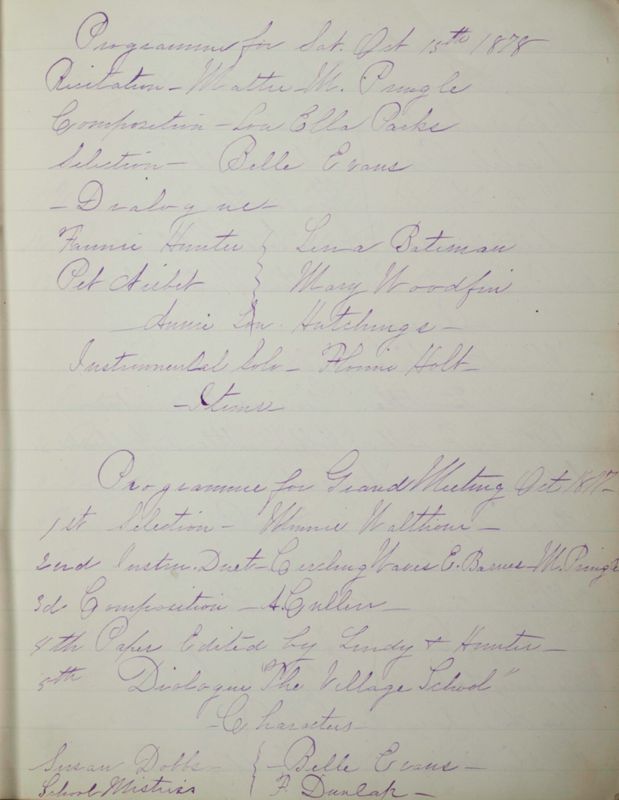 Programme for Sat. Oct 15th 1878
Recitation - Mattie M. Pringle
Composition - Lou Ella Parks
Selection - Belle Evans
- Dialogue -
Fannie Hunter } Lena Bateman
Pet Nisbet } Mary Woodfin
Annie Lou Hutchings -
Instrumental Solo - Florrie Holt
- Items
Programme for Grand Meeting Oct
1st Selection - Minnie Walthour -
2nd Instru. Duet - Circling Waves E. Barnes - M. Pringle
3d Composition - A. Cullen -
4th Paper Edited by Lundy & Hunter -
5th Dialogue "The Village School"
- Characters -
Susan Dobbs - { - Belle Evans -
School Mistriss { F. Dunlap -